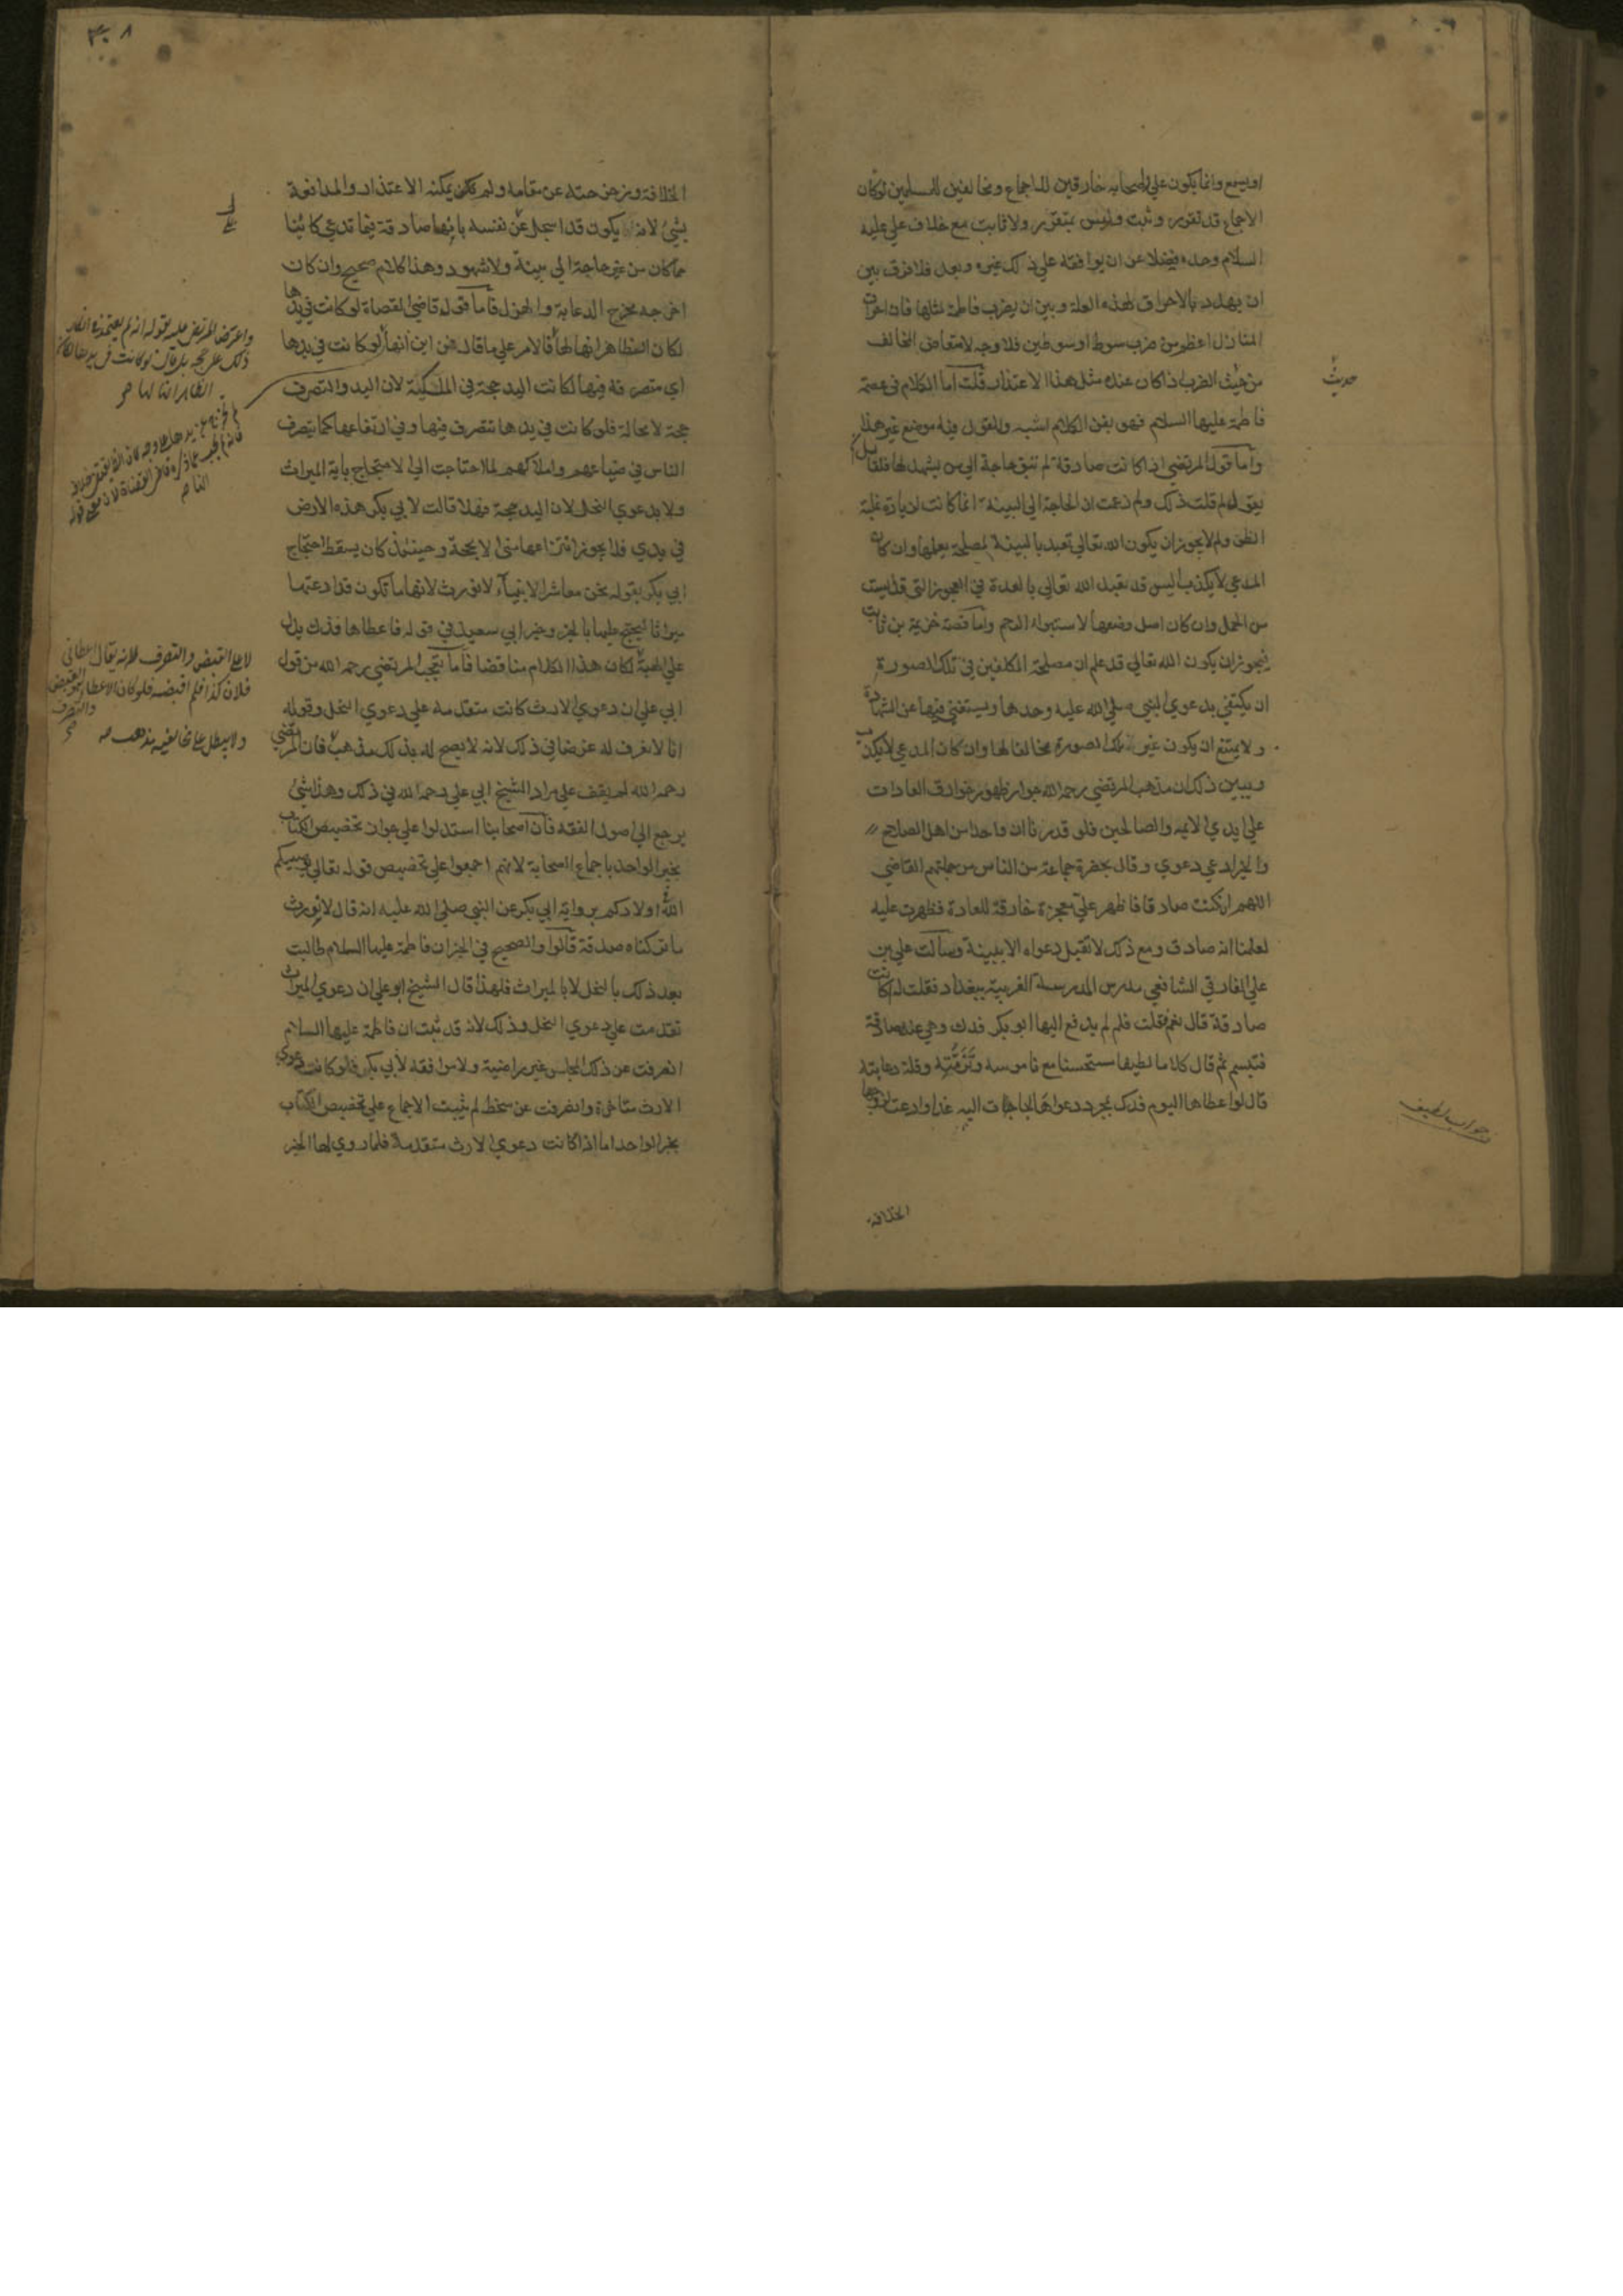 او يسمع وانما يكون علي واصحابه خارقين للاجماع ومخالفين للمسلمين لو كان
الاجماع قد تقرر وثبت وليس بمتقرر ولا ثابت مع خلاف علي عليه
السلام وحده فضلا عن ان يوافقه علي ذلك غيره وبعد فلا فرق بين
ان يهدد بالاحراق لهذه العلة وبين ان يضرب فاطمة لمثلها فان احراق
المنازل اعظم من ضرب سوط او سوطين فلا وجه لامتعاض المخالف
من حديث الضرب اذا كان عنده مثل هذا الاعتذار قلت اما الكلام في عصمة
فاطمة عليها السلام فهو بفن الكلام اشبه وللقول فيه موضع غير هذا
واما قول المرتضي اذا كانت صادقة لم تبق حاجة الي من يشهد لها فلقايل
يقول لم قلت ذلك ولم زعمت ان الحاجة الي البينة انما كانت لزيادة غلبة
الظن ولم لا يجوز ان يكون الله تعالي تعبد بالبينة لمصلحة يعلمها وان كان
المدعي لا يكذب اليس قد تعبد الله تعالي بالعدة في العجوز التي قد ايست
من الحمل وان كان اصل وضعها لاستبراء الرحم واما قصة خزيمة بن ثابت
فيجوز ان يكون الله تعالي قد علم ان مصلحة المكلفين في تلك الصورة
ان يكتفي بدعوي النبي صلي الله عليه وحدها ويستغني فيها عن الشهادة
ولا يمتنع ان يكون غير تلك الصورة مخالفا لها وان كان المدعي لا يكذب
ويبين ذلك ان مذهب المرتضي رحمه الله جواز ظهور خوارق العادات
علي ايدي الايمه والصالحين فلو قدرنا ان واحدا من اهل الصلاح
والخير ادعي دعوي وقال بحضرة جماعة من الناس من جملتهم القاضي
اللهم ان كنت صادقا فاظهر علي معجزة خارقة للعادة فظهرت عليه
لعلمنا انه صادق ومع ذلك لا تقبل دعواه الا ببينة وسألت علي بن
علي الفارقي الشافعي مدرس المدرسة الغربية ببغداد فقلت له اكانت
صادقة قال نعم فقلت فلم لم يدفع اليها ابو بكر فدك وهي عنده صادقة
فتبسم ثم قال كلاما لطيفا مستحسنا مع ناموسه وتزمته وقلة دعابته
قال لو اعطاها اليوم فدك بمجرد دعواها لجاءت اليه غدا وادعت لزوجها
الخلافة
حديث
جواب لطيف
الخلافة وزحزحته عن مقامه ولم يكن يمكنه الاعتذار والمدافعة
بشئ لانه يكون قد اسجل عن نفسه بانها صادقة فيما تدعي كائنا
ما كان من غير حاجة الي بينة ولا شهود وهذا كلام صحيح وان كان
اخرجه مخرج الدعابة والهزل فاما قول قاضي القضاة لو كانت في يدها
لكان الظاهر انها لها فالامر علي ما قال فمن اين انها لو كانت في يدها
اي متصرفة فيها لكانت اليد حجة في الملكية لان اليد والتصرف
حجة لا محالة فلو كانت في يدها تتصرف فيها وفي ارتفاعها كما يتصرف
الناس في ضياعهم واملاكهم لما احتاجت الي الاحتجاج باية الميراث
ولا بدعوي النحل لان اليد حجة فهلا قالت لابي بكر هذه الارض
في يدي فلا يجوز انتزاعها مني الا بحجة وحينئذ كان يسقط احتجاج
ابي بكر بقوله نحن معاشر الانبياء لا نورث لانها ما تكون قد ادعتها
ميراثا ليحتج عليها بالخبر وخبر ابي سعيد في قوله فاعطاها فدك يدل
علي الهبة لكان هذا الكلام مناقضا فاما تعجب المرتضي رحمه الله من قول
ابي علي ان دعوي الارث كانت متقدمة علي دعوي النحل وقوله
انا لا نعرف له غرضا في ذلك لانه لا يصح له بذلك مذهب فان المرتضي
رحمه الله لم يقف علي مراد الشيخ ابي علي رحمه الله في ذلك وهذا شئ
يرجع الي اصول الفقه فان اصحابنا استدلوا علي جواز تخصيص الكتاب
بخبر الواحد باجماع الصحابة لانهم اجمعوا علي تخصيص قوله تعالي يوصيكم
الله في اولادكم برواية ابي بكر عن النبي صلي الله عليه انه قال لا نورث
ما تركناه صدقة قالوا والصحيح في الخبر ان فاطمة عليها السلام طالبت
بعد ذلك بالنحل لا بالميراث فلهذا قال الشيخ ابو علي ان دعوي الميراث
تقدمت علي دعوي النحل وذلك لانه قد ثبت ان فاطمة عليها السلام
انصرفت عن ذلك المجلس غير راضية ولا موافقة لابي بكر فلو كانت دعوي
الارث متاخرة وانصرفت عن سخط لم يثبت الاجماع علي تخصيص الكتاب
بخبر الواحد اما اذا كانت دعوي الارث متقدمة فلما روي لها الخبر
واعترض المرتضي عليه بقوله انه لم يعتمد في انكار
ذلك علي حجة بل قال لو كانت في يدها لكان
الظاهر انها لها
لا علي القبض والتصرف لانه يقال اعطاني
فلان كذا فلم اقبضه فلو كان الاعطا هو القبض
والتصرف
ولا يبطل علي مخالفيه مذهب